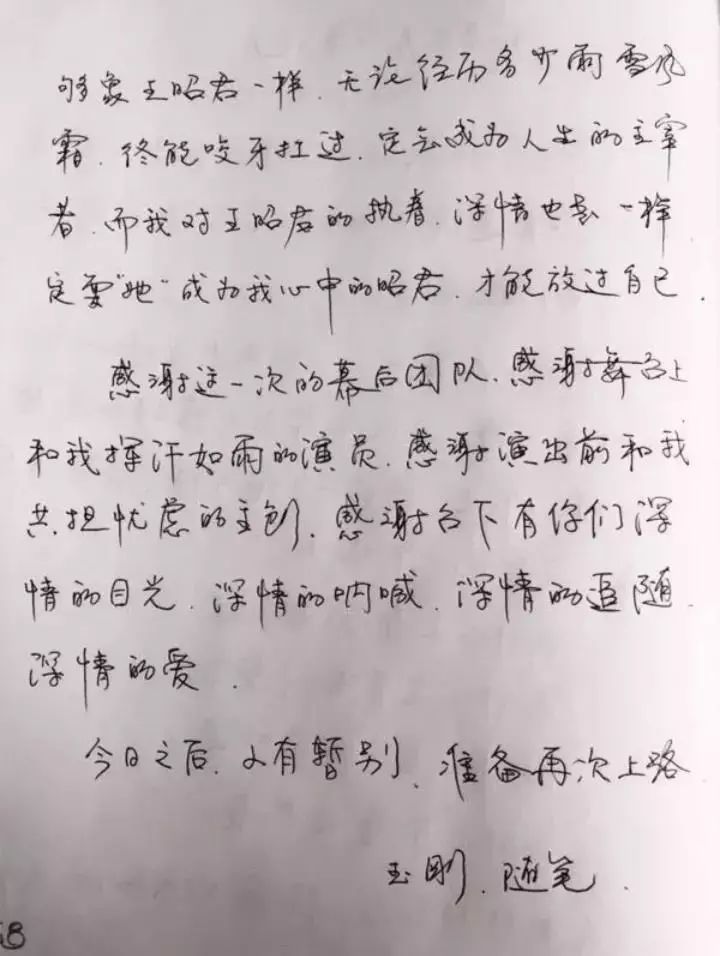 够象王昭君一样.无论经历多少雨雪风
霜.终能咬牙扛过.定会成为人生的主宰
者.而我对王昭君的执着.深情也是一样
定要"她"成为我心中的昭君.才能放过自己.
感谢这一次的幕后团队.感谢舞台上
和我挥汗如雨的演员.感谢演出前和我
共担忧虑的主创.感谢台下有你们深
情的目光.深情的呐喊.深情的追随.
深情的爱.
今日之后.小有暂别.准备再次上路
玉刚.随笔.